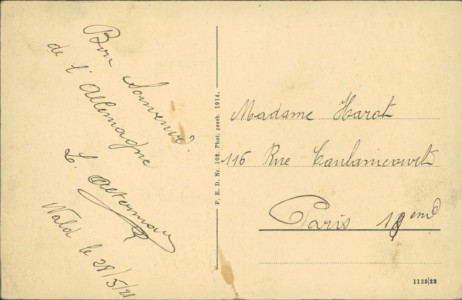 Bon Souvenir
de l'Allemagne
L. Ackerman
Wald le 28/5/21
P. E. D. Nr. 168. Phot. gesch. 1914.
Madame Harot
116 Rue Caulaincourt
Paris 18 eme
1120/23